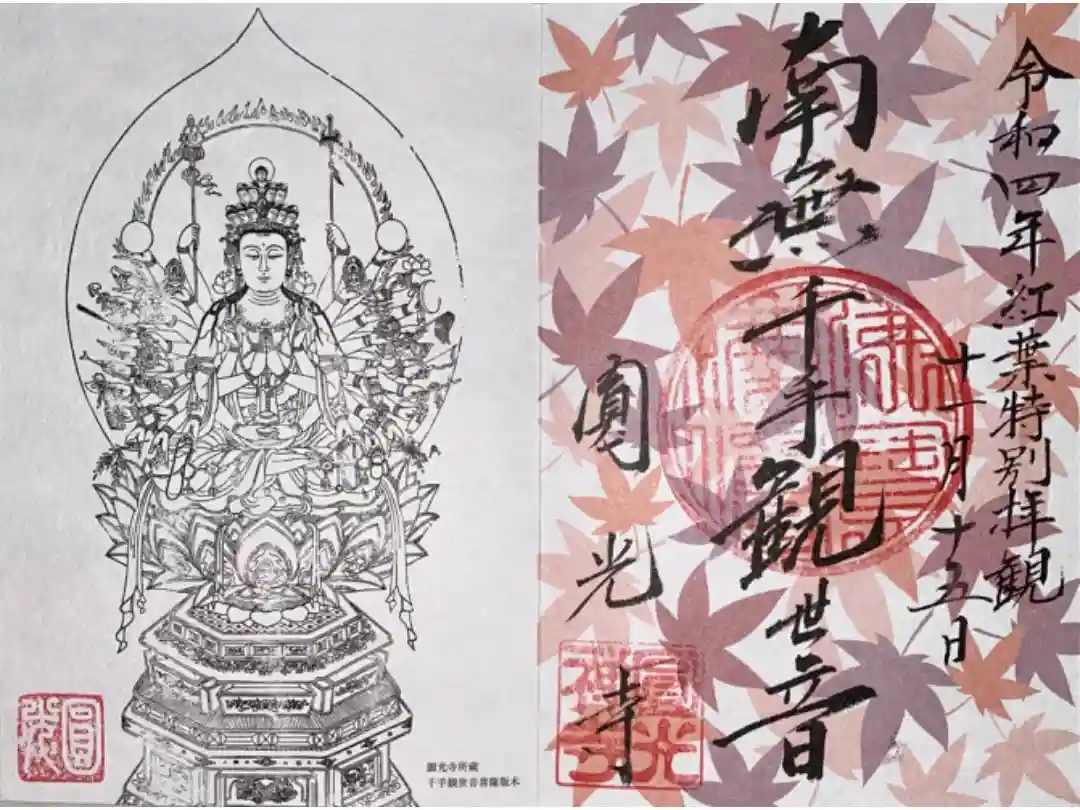 令和四年紅葉特別拝観
十一月十五日
南無千手観世音
圓光寺
圓光寺所蔵
千手観世音菩薩版木